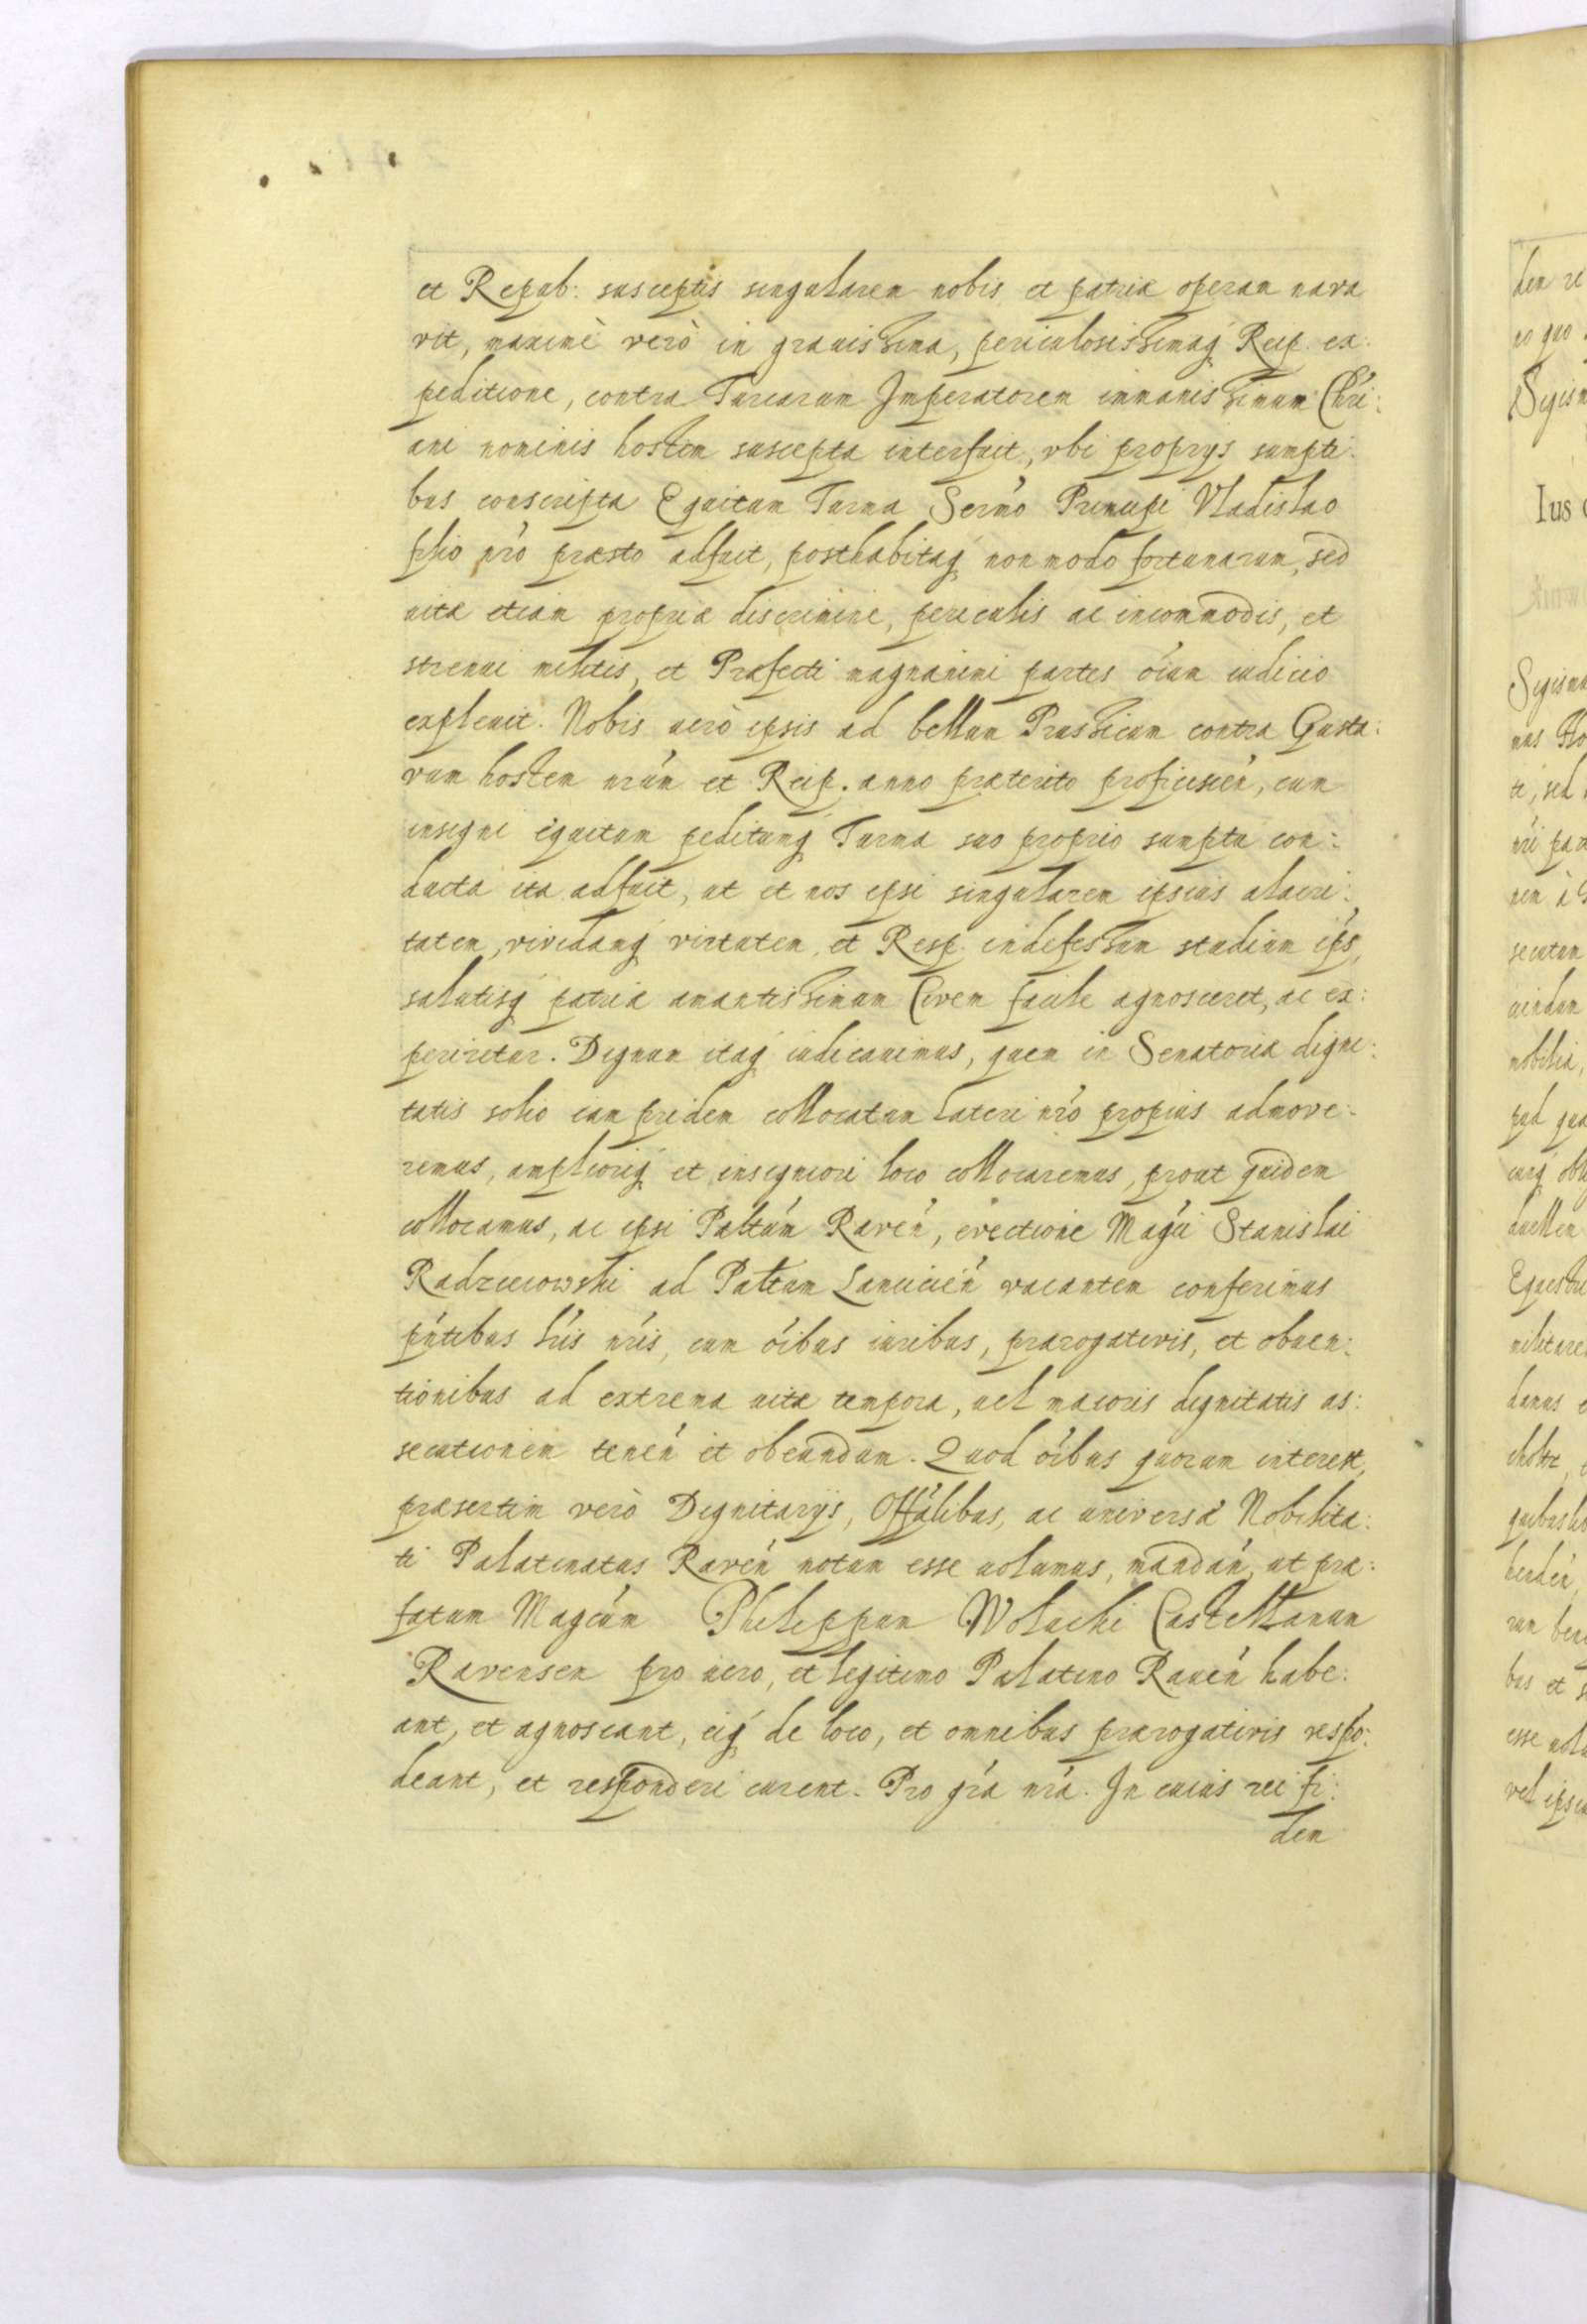 et Repub: susceptis singularem nobis et patriæ operam nava
vit, maximè verò in grauissima, periculosissimaq́ Reip. ex:
peditione, contra Turcarum Imperatorem immanissimum Chri:
ani nominis hostem suscepta interfuit, vbi proprijs sumpti:
bus conscripta Equitum Turma Sermo Principi Vladislao
filio nro præsto adfuit, posthabitaq́ non modo fortunarum, sed
uitæ etiam propriæ discrimine, periculis ac incommodis, et
strenui militis, et Præfecti magnanimi partes oium iudicio
expleuit. Nobis uerò ipsis ad bellum Prussicum contra Gusta:
vum hostem nrum et Reip. anno præterito proficiscen, cum
insigni equitum peditumq́ Turma suo proprio sumptu con:
ducta ita adfuit, ut et nos ipsi singularem ipsius alacri:
tatem, vividamq́ virtutem, et Resp. indefessum studium ips,
salutisq́ patriæ amantissimum Civem facile agnosceret, ac ex:
periretur. Dignum itaq́ iudicauimus, quem in Senatoriæ digni:
tatis solio iam pridem collocatum lateri nro propius admove:
remus, amplioriq́ et insigniori loco collocaremus, prout quidem
collocamus, ac ipsi Paltum Raven, evectione Magci Stanislai
Radzieiowski ad Paltum Lancicien vacantem conferimus
pntibus lris nris, cum oibus iuribus, prærogativis, et obuen:
tionibus ad extrema uitæ tempora, uel maioris dignitatis as:
secutionem tenen et obeundum. Quod oibus quorum interest,
præsertim verò Dignitarijs, Offalibus, ac universæ Nobilita:
ti Palatinatus Raven notum esse uolumus, mandan, ut præ:
fatum Magcum Philippum Wolucki Castellanum
Ravensem pro uero, et legitimo Palatino Rauen habe:
ant, et agnoscant, eiq́ de loco, et omnibus prærogativis respo:
deant, et responderi curent. Pro gra nra. In cuius rei fi:
dem